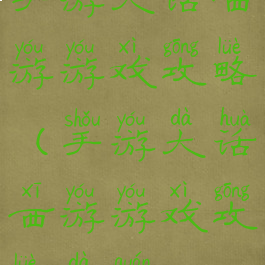 yóu yóu xì gōng lüè
游游戏攻略
shǒu yóu dà huà
（手游大话
xī yóu yóu xì gōng
西游游戏攻